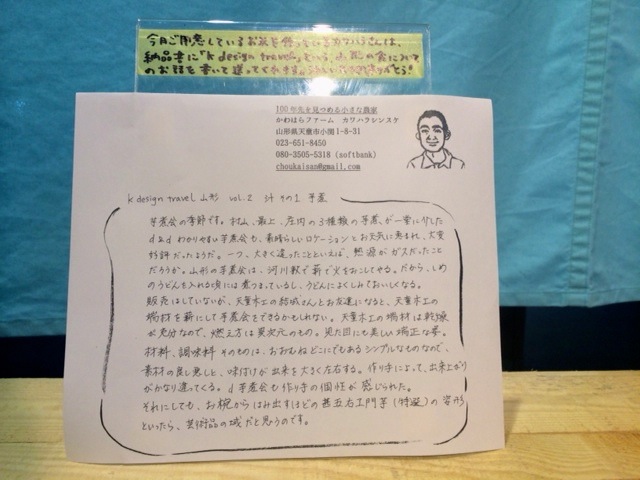 今月ご用意しているお米を作っているカワハラさんは、
納品書に「k design travel」という、山形の食について
のお話を書いて送ってくれます。
100年先を見つめる小さな農家
かわはらファーム カワハラシンスケ
山形県天童市小関1-8-31
023-651-8450
080-3505-5318 (softbank)
choukaisan@gmail.com
k design travel 山形 vol.2 汁 その1 芋煮
芋煮会の季節です。村山、最上、庄内の3種類の芋煮が一堂に介した
d&d わかりやすい芋煮会も、素晴らしいロケーションとお天気に恵まれ、大変
好評だったようだ。一つ、大きく違ったことといえば、熱源がガスだったこと
だろうか。山形の芋煮会は、河川敷で薪で火をおこしてやる。だから、しめ
のうどんを入れる頃には煮つまっているし、うどんによくしみておいしくなる。
販売はしていないが、天童木工の結城さんとお友達になると、天童木工の
端材を薪にして芋煮会をできるかもしれない。天童木工の端材は乾燥
が充分なので、燃え方は異次元のもの。見た目にも美しい端正な姿。
材料、調味料そのものは、おおむねどこにでもあるシンプルなものなので、
素材の良し悪しと、味付けが出来を大きく左右する。作り手によって、出来上がり
がかなり違ってくる。d芋煮会も作り手の個性が感じられた。
それにしても、お椀からはみ出すほどの甚五右ヱ門芋(特選)の姿形
といったら、芸術品の域だと思うのです。